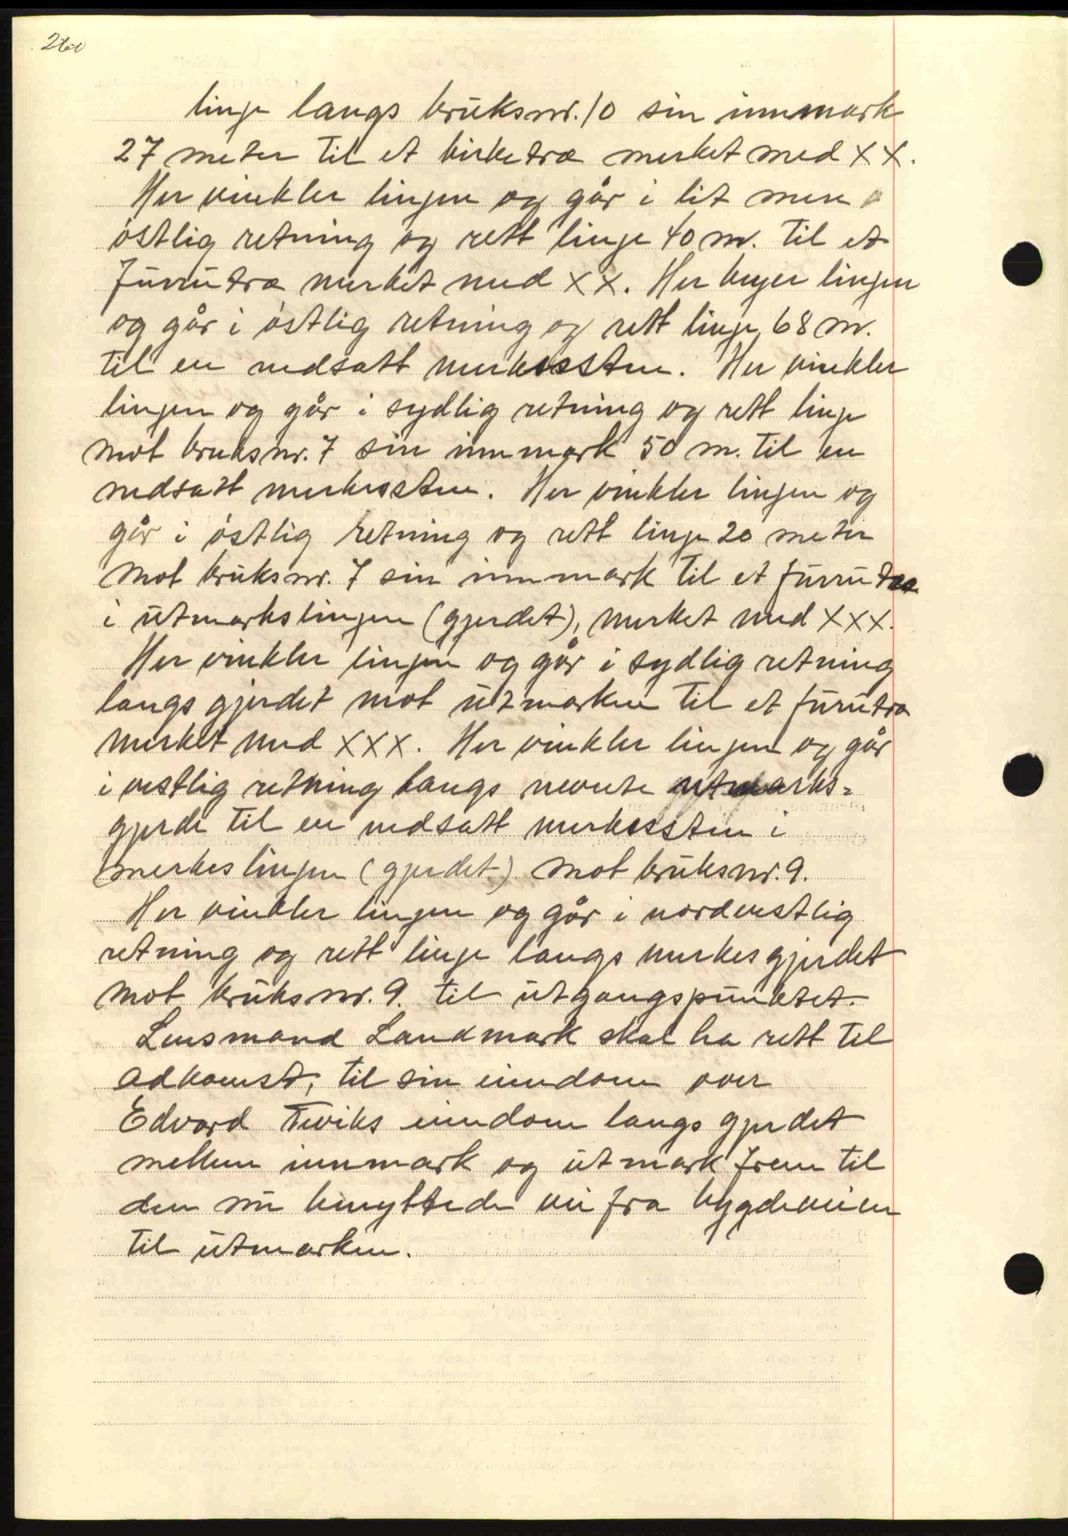 260
linje langs bruksnr. 10 sin innmark
27 meter til et birketræ merket med XX.
Her vinkler linjen og går i lit mer
østlig retning og rett linje 40 m. til et
furrutræ merket med XX. Her bøyer linjen
og går i østlig retning og rett linje 68 m.
til en nedsatt merkessten. Her vinkler
linjen og går i sydlig retning og rett linje
mot bruksnr. 7 sin innmark 50 m. til en
nedsatt merkessten. Her vinkler linjen og
går i østlig retning og rett linje 20 meter
mot bruksnr. 7 sin innmark til et furrutræ
i utmarkslinjen (gjerdet), merket med XXX.
Her vinkler linjen og går i sydlig retning
langs gjerdet mot utmarken til et furutræ
merket med XXX. Her vinkler linjen og går
i vestlig retning langs nevnte utmarks-
gjerde til en nedsatt merkessten i
merkeslinjen (gjerdet) mot bruksnr. 9.
Her vinkler linjen og går i nordvestlig
retning og rett linje langs merkesgjerdet
mot bruksnr. 9. til utgangspunktet.
Lensmand Landmark skal ha rett til
adkomst, til sin eiendom over
Edvard Tviks eiendom langs gjerdet
mellem innmark og utmark frem til
den nu benyttede vei fra bygdeveien
til utmarken.